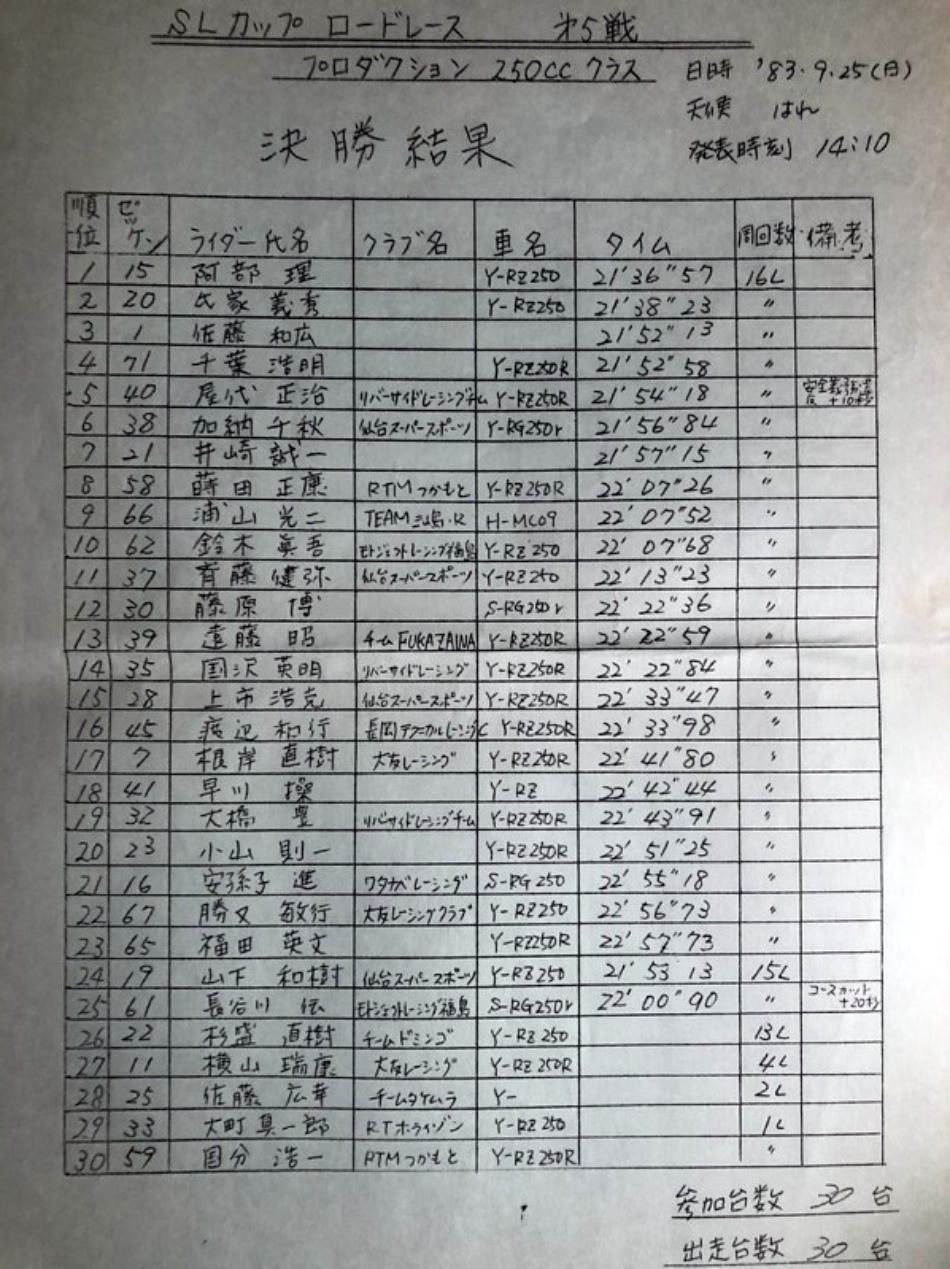 SLカップ ロードレース 第5戦
プロダクション 250cc クラス
日時 '83.9.25(日)
天候 はれ
発表時刻 14:10
決勝結果
順位 ゼッケン ライダー氏名 クラブ名 車名 タイム 周回数 備考
1 15 阿部 理 Y-RZ250 21'36"57 16L
2 20 氏家 義秀 Y-RZ250 21'38"23 〃
3 1 佐藤 和広 21'52"13 〃
4 71 千葉 浩明 Y-RZ250R 21'52"58 〃
5 40 屋代 正治 リバーサイドレーシングチーム Y-RZ250R 21'54"18 〃 +10秒
6 38 加納 千秋 仙台スーパースポーツ Y-RG250γ 21'56"84 〃
7 21 井崎 誠一 21'57"15 〃
8 58 蒔田 正康 RTMつかもと Y-RZ250R 22'07"26 〃
9 66 浦山 光二 TEAM 三島・R H-MC09 22'07"52 〃
10 62 鈴木 眞吾 モトジェットレーシング福島 Y-RZ250 22'07"68 〃
11 37 斉藤 健弥 仙台スーパースポーツ Y-RZ250 22'13"23 〃
12 30 藤原 博 S-RG250γ 22'22"36 〃
13 39 遠藤 昭 チームFUKAZAWA Y-RZ250R 22'22"59 〃
14 35 国沢 英明 リバーサイドレーシング Y-RZ250R 22'22"84 〃
15 28 上市 浩克 仙台スーパースポーツ Y-RZ250R 22'33"47 〃
16 45 渡辺 和行 長岡テクニカルレーシングC Y-RZ250R 22'33"98 〃
17 7 根岸 直樹 大友レーシング Y-RZ250R 22'41"80 〃
18 41 早川 操 Y-RZ 22'42"44 〃
19 32 大橋 豊 リバーサイドレーシングチーム Y-RZ250R 22'43"91 〃
20 23 小山 則一 Y-RZ250R 22'51"25 〃
21 16 安孫子 進 ワタナベレーシング S-RG250 22'55"18 〃
22 67 勝又 敏行 大友レーシングクラブ Y-RZ250 22'56"73 〃
23 65 福田 英文 Y-RZ250R 22'57"73 〃
24 19 山下 和樹 仙台スーパースポーツ Y-RZ250 21'53 13 15L
25 61 長谷川 伝 モトジェットレーシング福島 S-RG250γ 22'00"90 〃 コースカット +20秒
26 22 杉盛 直樹 チームドミンゴ Y-RZ250 13L
27 11 横山 瑞康 大友レーシング Y-RZ250R 4L
28 25 佐藤 広幸 チームタケムラ Y- 2L
29 33 大町 真一郎 RTホライゾン Y-RZ250 1L
30 59 国分 浩一 RTMつかもと Y-RZ250R 〃
参加台数 30 台
出走台数 30 台